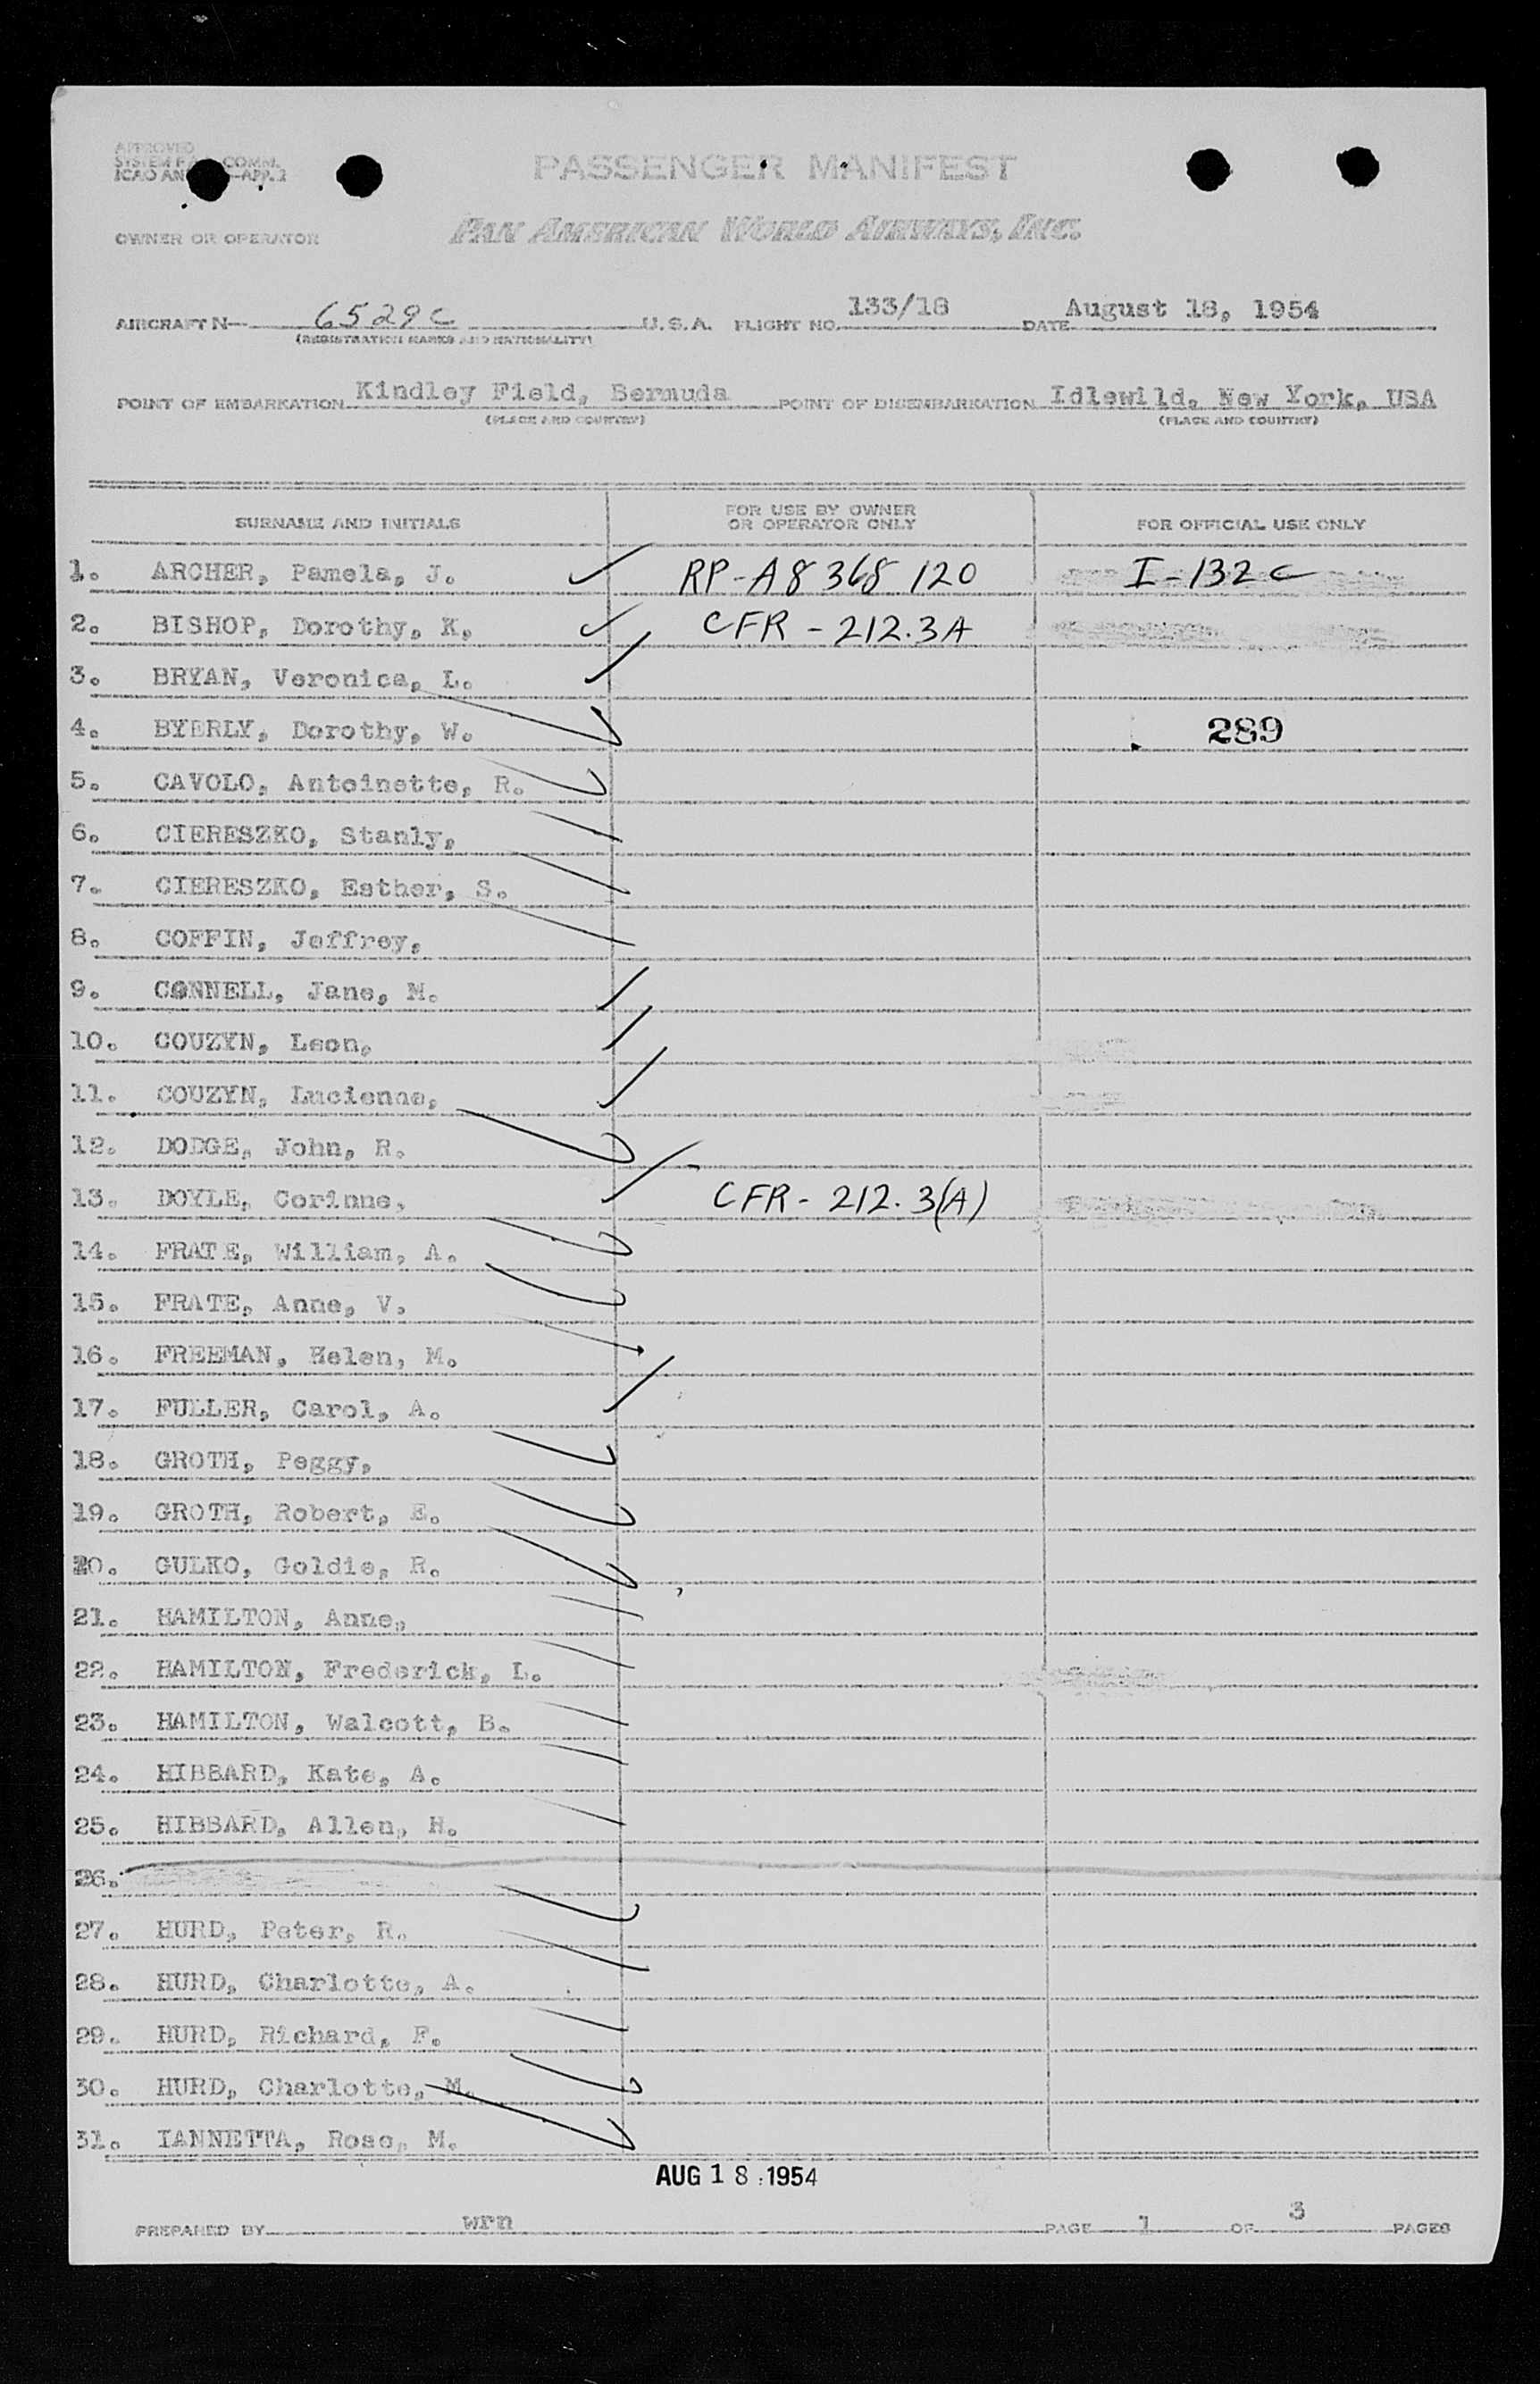 APPROVED
SYSTEM COMM.
ICAO AN -APP. 2
PASSENGER MANIFEST
OWNER OR OPERATOR PAN AMERICAN WORLD AIRWAYS, INC.
AIRCRAFT N- 6529C U.S.A. FLIGHT NO. 133/18 DATE August 18, 1954
(REGISTRATION MARKS AND NATIONALITY)
POINT OF EMBARKATION Kindley Field, Bermuda POINT OF DISEMBARKATION Idlewild, New York, USA
(PLACE AND COUNTRY) (PLACE AND COUNTRY)
SURNAME AND INITIALS FOR USE BY OWNER OR OPERATOR ONLY FOR OFFICIAL USE ONLY
1. ARCHER, Pamela, J. RP-A8 368 120 I-132c
2. BISHOP, Dorothy, K, CFR - 212.3A
3. BRYAN, Veronica, L.
4. BYERLY, Dorothy, W. 289
5. CAVOLO, Antoinette, R.
6. CIERESZKO, Stanly,
7. CIERESZKO, Esther, S.
8. COFFIN, Jeffrey,
9. CONNELL, Jane, M.
10. COUZYN, Leon,
11. COUZYN, Lucienne,
12. DODGE, John, R.
13. DOYLE, Corinne, CFR - 212. 3(A)
14. FRATE, William, A.
15. FRATE, Anne, V.
16. FREEMAN, Helen, M.
17. FULLER, Carol, A.
18. GROTH, Peggy,
19. GROTH, Robert, E.
20. GULKO, Goldie, R.
21. HAMILTON, Anne,
22. HAMILTON, Frederick, L.
23. HAMILTON, Walcott, B.
24. HIBBARD, Kate, A.
25. HIBBARD, Allen, H.
26.
27. HURD, Peter, R.
28. HURD, Charlotte, A.
29. HURD, Richard, F.
30. HURD, Charlotte, M.
31. IANNETTA, Rose, M.
AUG 18 1954
PREPARED BY wrn PAGE 1 OF 3 PAGES